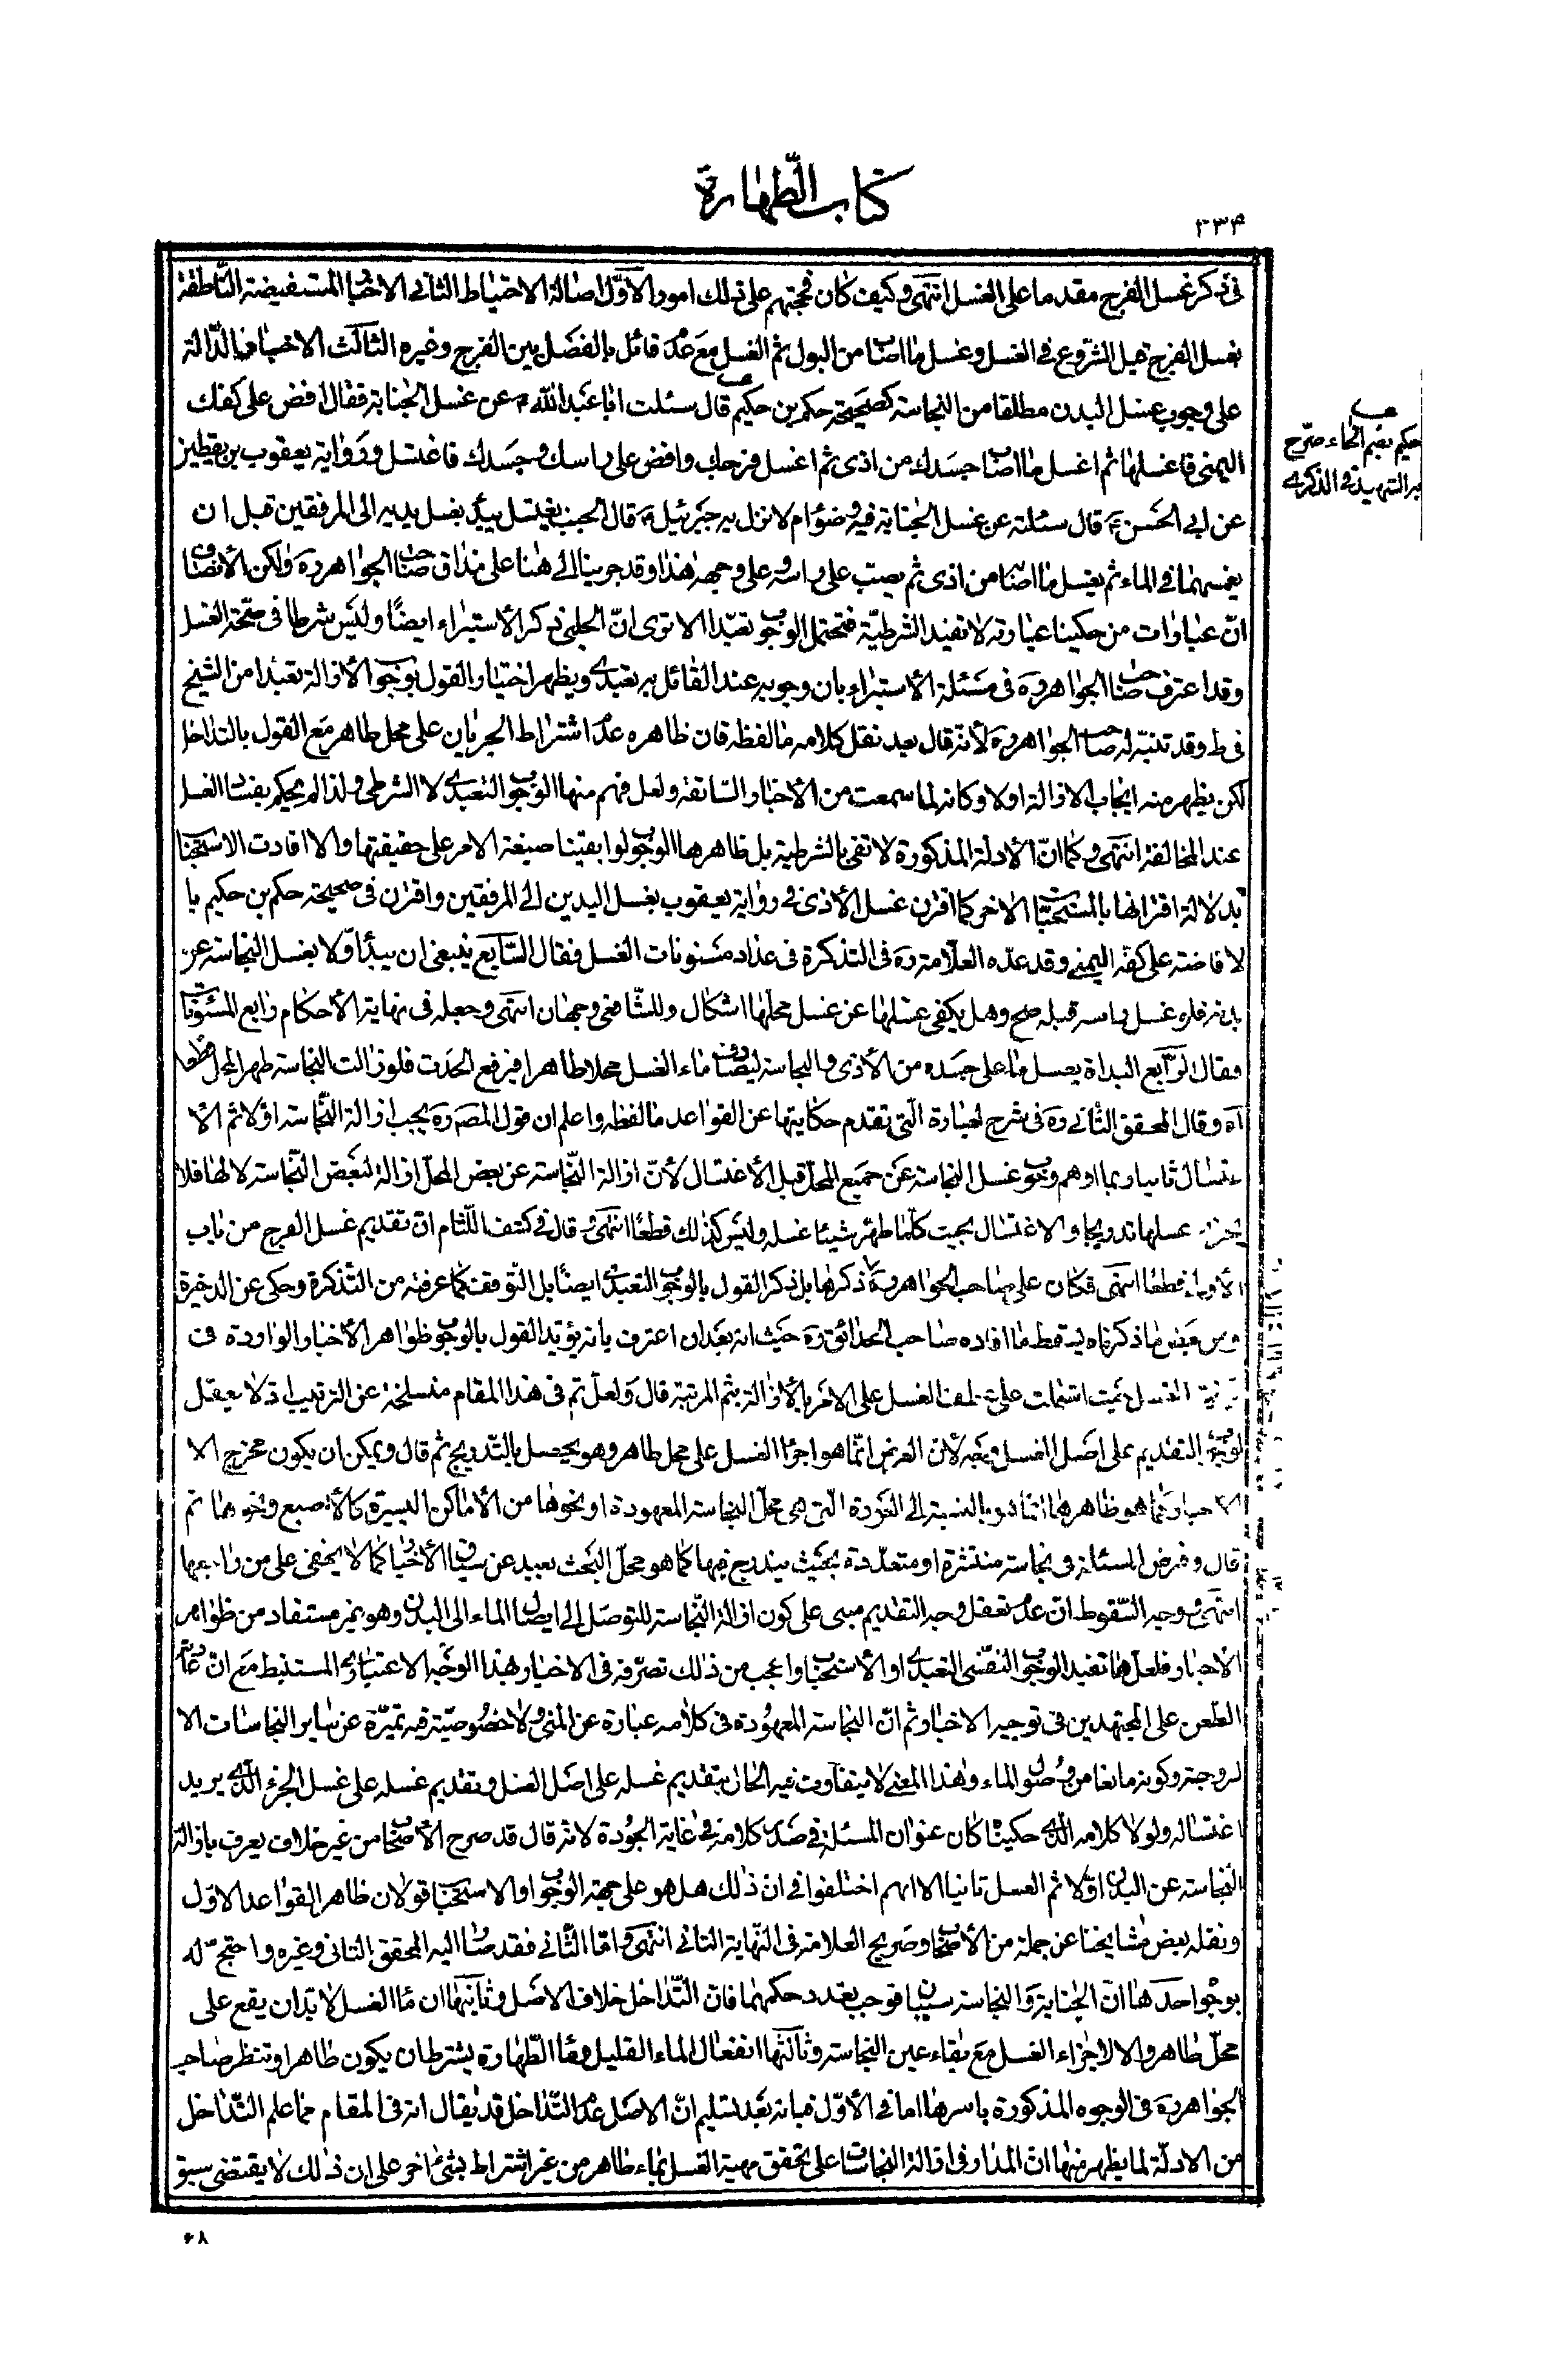 كتاب الطهارة
٢٣۴
فى ذكر غسل الفرج مقدما على الغسل انتهى وكيف كان فحجتهم على ذلك امور الاوّل اصالة الاحتياط الثانى الاخبار المستفيضة الناطقة
بغسل الفرج قبل الشروع فى الغسل وغسل ما اصاب من البول ثم الغسل مع عدم قائل بالفصل بين الفرج وغيره الثالث الاخبار الدالة
على وجوب غسل البدن مطلقا من النجاسة كصحيحة حكم بن حكيم قال سئلت ابا عبد الله ع عن غسل الجنابة فقال افض على كفك
اليمنى فاغسلها ثم اغسل ما اصاب جسدك من اذى ثم اغسل فرجك وافض على راسك وجسدك فاغتسل ورواية يعقوب بن يقطين
عن ابى الحسن ع قال سئلته عن غسل الجنابة فيه وضؤ ام لا نزل به جبرئيل ع قال الجنب يغتسل يبدأ بغسل يديه الى المرفقين قبل ان
يغمسهما فى الماء ثم يغسل ما اصابه من اذى ثم يصب على راسه وعلى وجهه هذا وقد جرينا الى هنا على مذاق صاحب الجواهر ره ولكن الأنصاف
انّ عبارات من حكينا عبارته لا تفيد الشرطيّة فتحتمل الوجوب تعبّدا الا ترى انّ الحلبى ذكر الأستبراء ايضًا وليس شرطا فى صحّة الغسل
وقد اعترف صاحب الجواهر ره فى مسئلة الأستبراء بان وجوبه عند القائل به تعبدى ويظهر اختيار القول بوجوب الأزالة تعبّدا من الشيخ
فى ط وقد تنبّه له صاحب الجواهر ره لأنه قال بعد نقل كلامه ما لفظه فان ظاهره عدم اشتراط الجريان على محل طاهر مع القول بالتداخل
لكن يظهر منه ايجاب الازالة اولا وكانه لما سمعت من الأخبار السّابقة ولعل فهم منها الوجوب التعبدى لا الشرطى ولذا لم يحكم بفساد الغسل
عند المخالفة انتهى وكما انّ الأدلة المذكورة لا تفى بالشرطية بل ظاهرها الوجوب لو ابقينا صيغة الامر على حقيقتها والا افادت الاستحباب
بدلالة اقترانها بالمستحبّات الاخر كما اقترن غسل الأذى فى رواية يعقوب بغسل اليدين الى المرفقين واقترن فى صحيحة حكم بن حكيم با
لافاضة على كفه اليمنى وقد عدّه العلّامة ره فى التذكرة فى عداد مسنونات الغسل فقال السّابع ينبغى ان يبدأ اوّلا بغسل النجاسة عن
بدنه فلو غسل راسه قبله صح وهل يكفى غسلها عن غسل محلّها اشكال وللشّافعى وجهان انتهى وجعله فى نهاية الأحكام رابع المسنونات
وقال الرّابع البداة بغسل ما على جسده من الأذى والنجاسة ليصادف ماء الغسل محلا طاهرا فيرفع الحدث فلو زالت النجاسة طهر المحل قطعا
آه وقال المحقق الثانى ره فى شرح العبارة التى تقدم حكايتها عن القواعد ما لفظه واعلم ان قول المصّ ره يجب ازالة النّجاسة اوّلا ثم الا
غتسال ثانيا ربما اوهم وجوب غسل النجاسة عن جميع المحلّ قبل الأغتسال لأنّ ازالة النّجاسة عن بعض المحلّ ازالة لبعض النّجاسة لا لها فلا
يجزى غسلها تدريجا والاغتسال بحيث كلّما طهر شيئا غسله وليس كذلك قطعًا انتهى وقال فى كشف اللّثام انّ تقديم غسل الفرج من باب
الأولى قطعًا انتهى فكان على صاحب الجواهر ره ذكرها بل ذكر القول بالوجوب التعبدى ايضًا بل التّوقف كما عرفته من التّذكرة وحكى عن الذخيرة
ومن بعض ما ذكرناه يسقط ما افاده صاحب الحدائق ره حيث انه بعد ان اعترف بانه يؤيد القول بالوجوب ظواهر الأخبار الواردة فى
كيفية الغسل حيث اشتملت على عطف الغسل على الامر بالأزالة بثم المرتبة قال ولعلّ ثم فى هذا المقام منسلخة عن الترتيب اذ لا يعقل
لوجوب التقديم على اصل الغسل وجه لأنّ الغرض انّما هو اجراء الغسل على محل طاهر وهو يحصل بالتّدريج ثم قال ويمكن ان يكون مخرج الا
لاخبار وكما هو ظاهرها انما هو بالنسبة الى العورة التى هى محلّ النجاسة المعهودة او نحوها من الأماكن اليسيرة كالأصبع ونحوهما ثم
قال وفرض المسئلة فى نجاسة منتشرة او متعدّدة بحيث يندرج فيها كما هو محلّ البحث بعيد عن سياق الأخبار كما لا يخفى على من راجعها
انتهى ووجه السّقوط انّ عدم تعقل وجه التقديم مبنى على كون ازالة النّجاسة للتوصّل الى ايصال الماء الى البدن وهو غير مستفاد من ظواهر
الأخبار فلعلّها تفيد الوجوب النفسى التعبدى او الأستحباب واعجب من ذلك تصرّفه فى الاخبار بهذا الوجه الاعتبارى المستنبط مع ان عادته
الطّعن على المجتهدين فى توجيه الاخبار ثم انّ النجاسة المعهودة فى كلامه عبارة عن المنى ولا خصوصيّة فيه تميّزه عن ساير النجاسات الا
لزوجته وكونه مانعا من وصول الماء وهذا المعنى لا يتفاوت فيه الحال بتقديم غسله على اصل الغسل وتقديم غسله على غسل الجزء الذى يريد
اغتساله ولولا كلامه الذى حكيناه كان عنوان المسئلة فى صدر كلامه فى غاية الجودة لانه قال قد صرح الأصحاب من غير خلاف يعرف بازالة
النجاسة عن البدن اوّلا ثم الغسل ثانيا الا انهم اختلفوا فى ان ذلك هل هو على جهة الوجوب او الاستحباب قولان ظاهر القواعد الاوّل
ونقله بعض مشايخنا عن جملة من الأصحاب وصريح العلامة فى النّهاية الثانى انتهى وامّا الثّانى فقد صار اليه المحقق الثانى وغيره واحتجّ له
بوجوه احدها انّ الجنابة والنجاسة سببان فوجب تعدد حكمهما فانّ التّداخل خلاف الاصل وثانيها ان ماء الغسل لا بدّ ان يقع على
محلّ طاهر والا لاجزاء الغسل مع بقاء عين النجاسة وثالثها انفعال الماء القليل وماء الطّهارة يشترط ان يكون طاهرا وتنظر صاحب
الجواهر ره فى الوجوه المذكورة باسرها اما فى الأوّل فبانه بعد تسليم انّ الاصل عدم التّداخل قد يقال انه فى المقام مما علم التّداخل
من الادلّة لما يظهر منها انّ المدار فى ازالة النجاسات على تحقق مهية الغسل بماء طاهر من غير اشتراط بشئ اخر على ان ذلك لا يقتضى سبق
حكيم بضم الحاء صرّح
به الشهيد فى الذكرى
۶٨